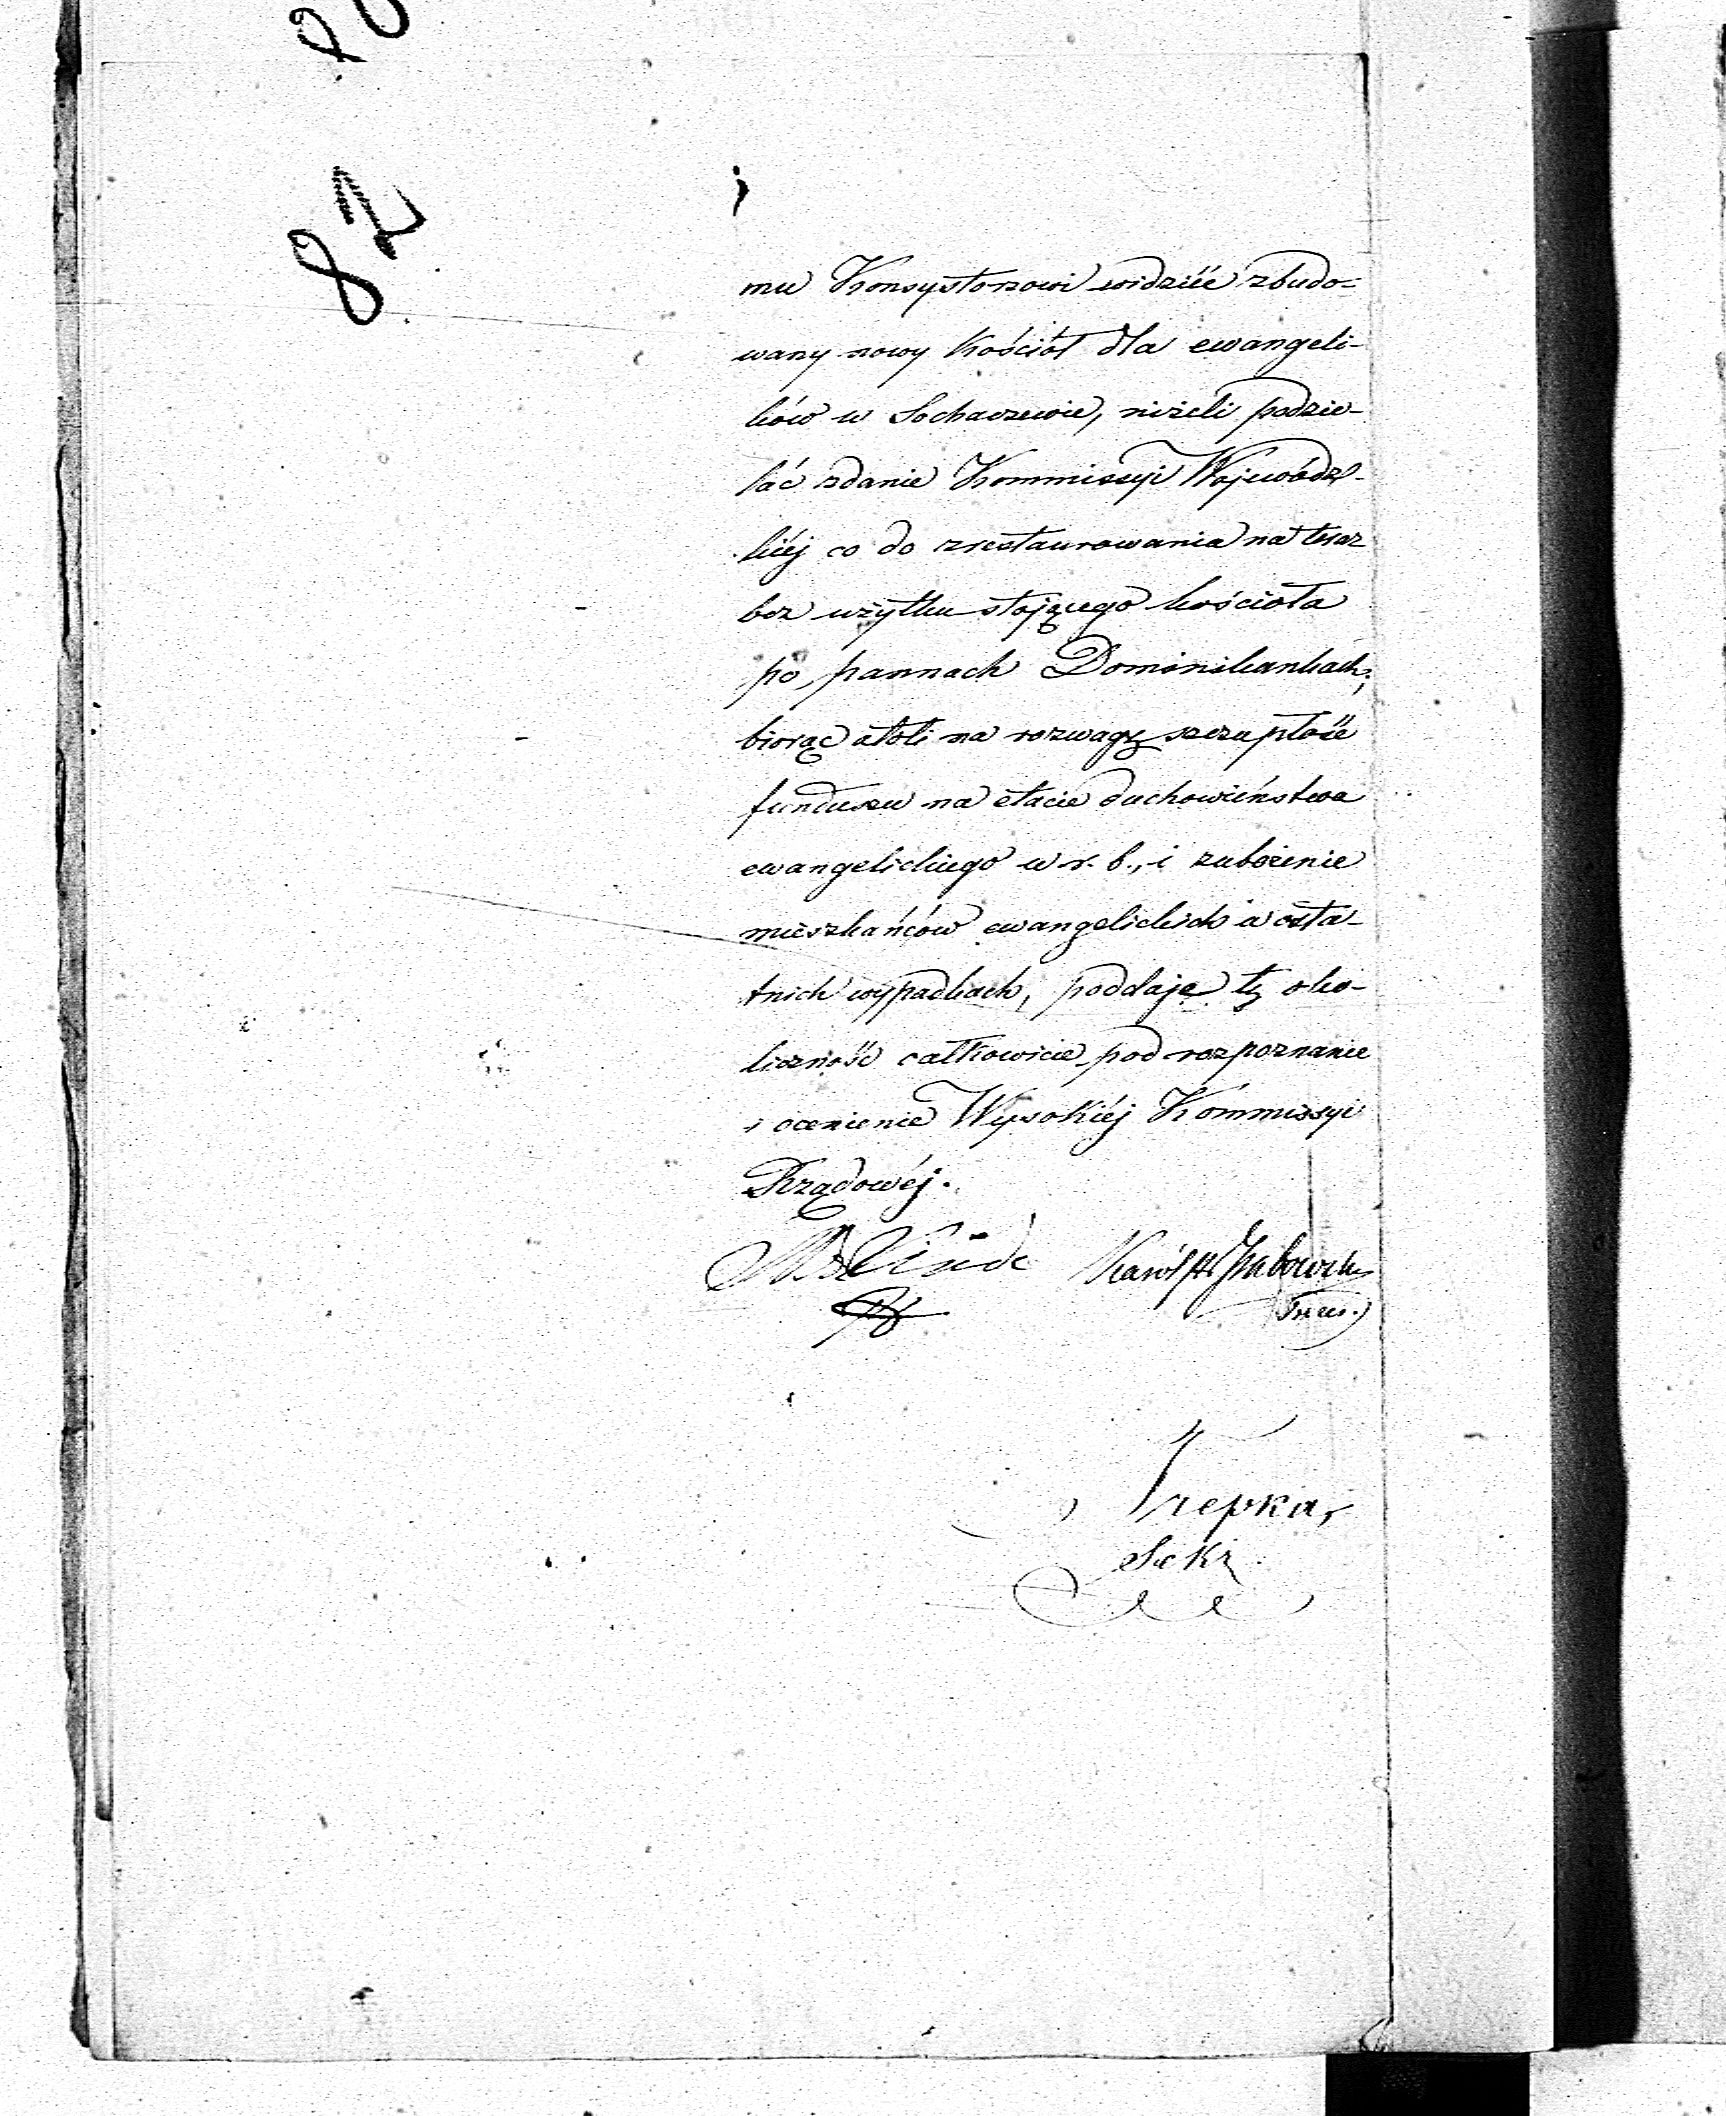 82
mu Konsystorzowi widziéć zbudo-
wany nowy kościół dla ewangeli-
ków w Sochaczewie, niżeli podzie-
lać zdanie Kommissyi Wojewódz-
kiéj co do zrestaurowania na teraz
bez użytku stojącego kościoła
po pannach Dominikankach;
biorąc atoli na rozwagę szczupłość
funduszu na etacie duchowieństwa
ewangelickiego w r. b., i zubożenie
mieszkańców ewangelickich w osta-
tnich wypadkach, poddaje tę oko-
liczność całkowicie pod rozpoznanie
i ocenienie Wysokiéj Kommissyi
Rządowéj.
Linde Karól
Trepka,
Sekr.